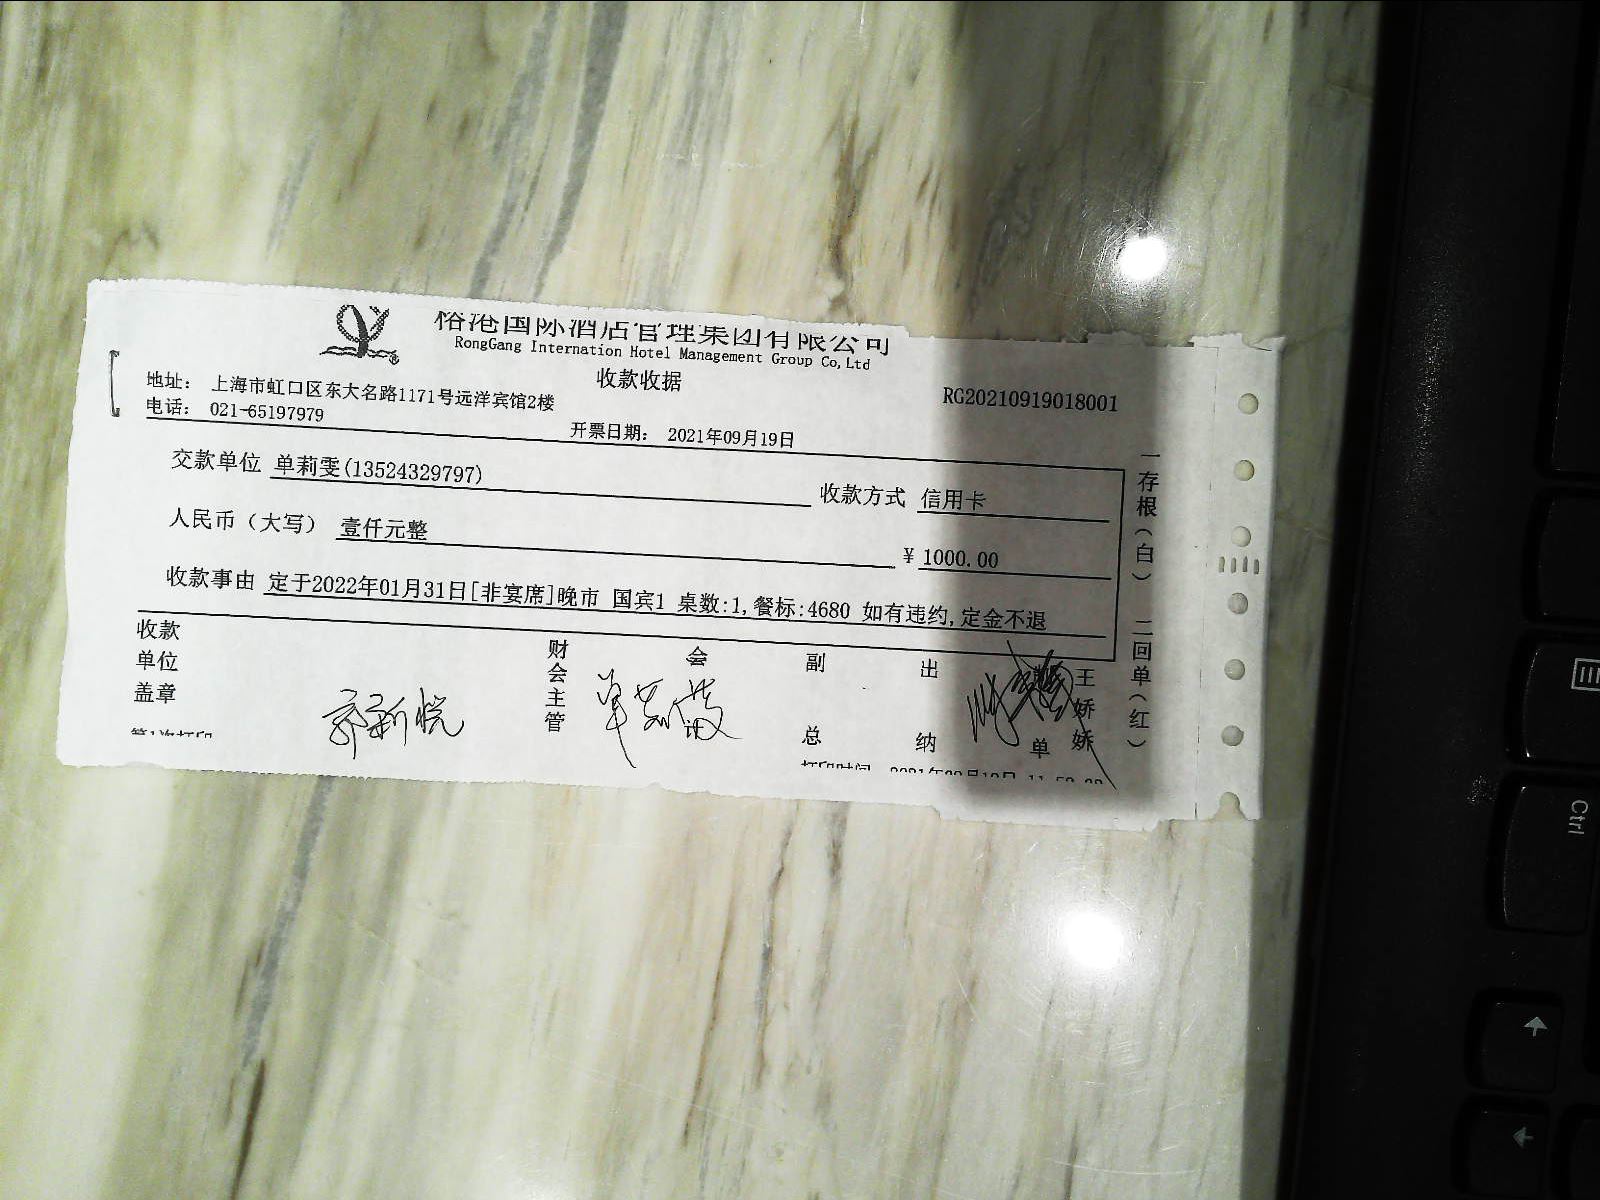 榕港国际酒店管理集团有限公司
RongGang Internation Hotel Management Group Co,Ltd
收款收据
地址: 上海市虹口区东大名路1171号远洋宾馆2楼
RG20210919018001
电话: 021-65197979
开票日期: 2021年09月19日
交款单位 单莉雯(13524329797)
收款方式 信用卡
人民币(大写) 壹仟元整
¥ 1000.00
收款事由 定于2022年01月31日[非宴席]晚市 国宾1 桌数:1,餐标:4680 如有违约,定金不退
一存根(白) 二回单(红)
收款单位盖章
财会主管
会
副总
出纳
单
王娇娇
第1次打印
Ctrl